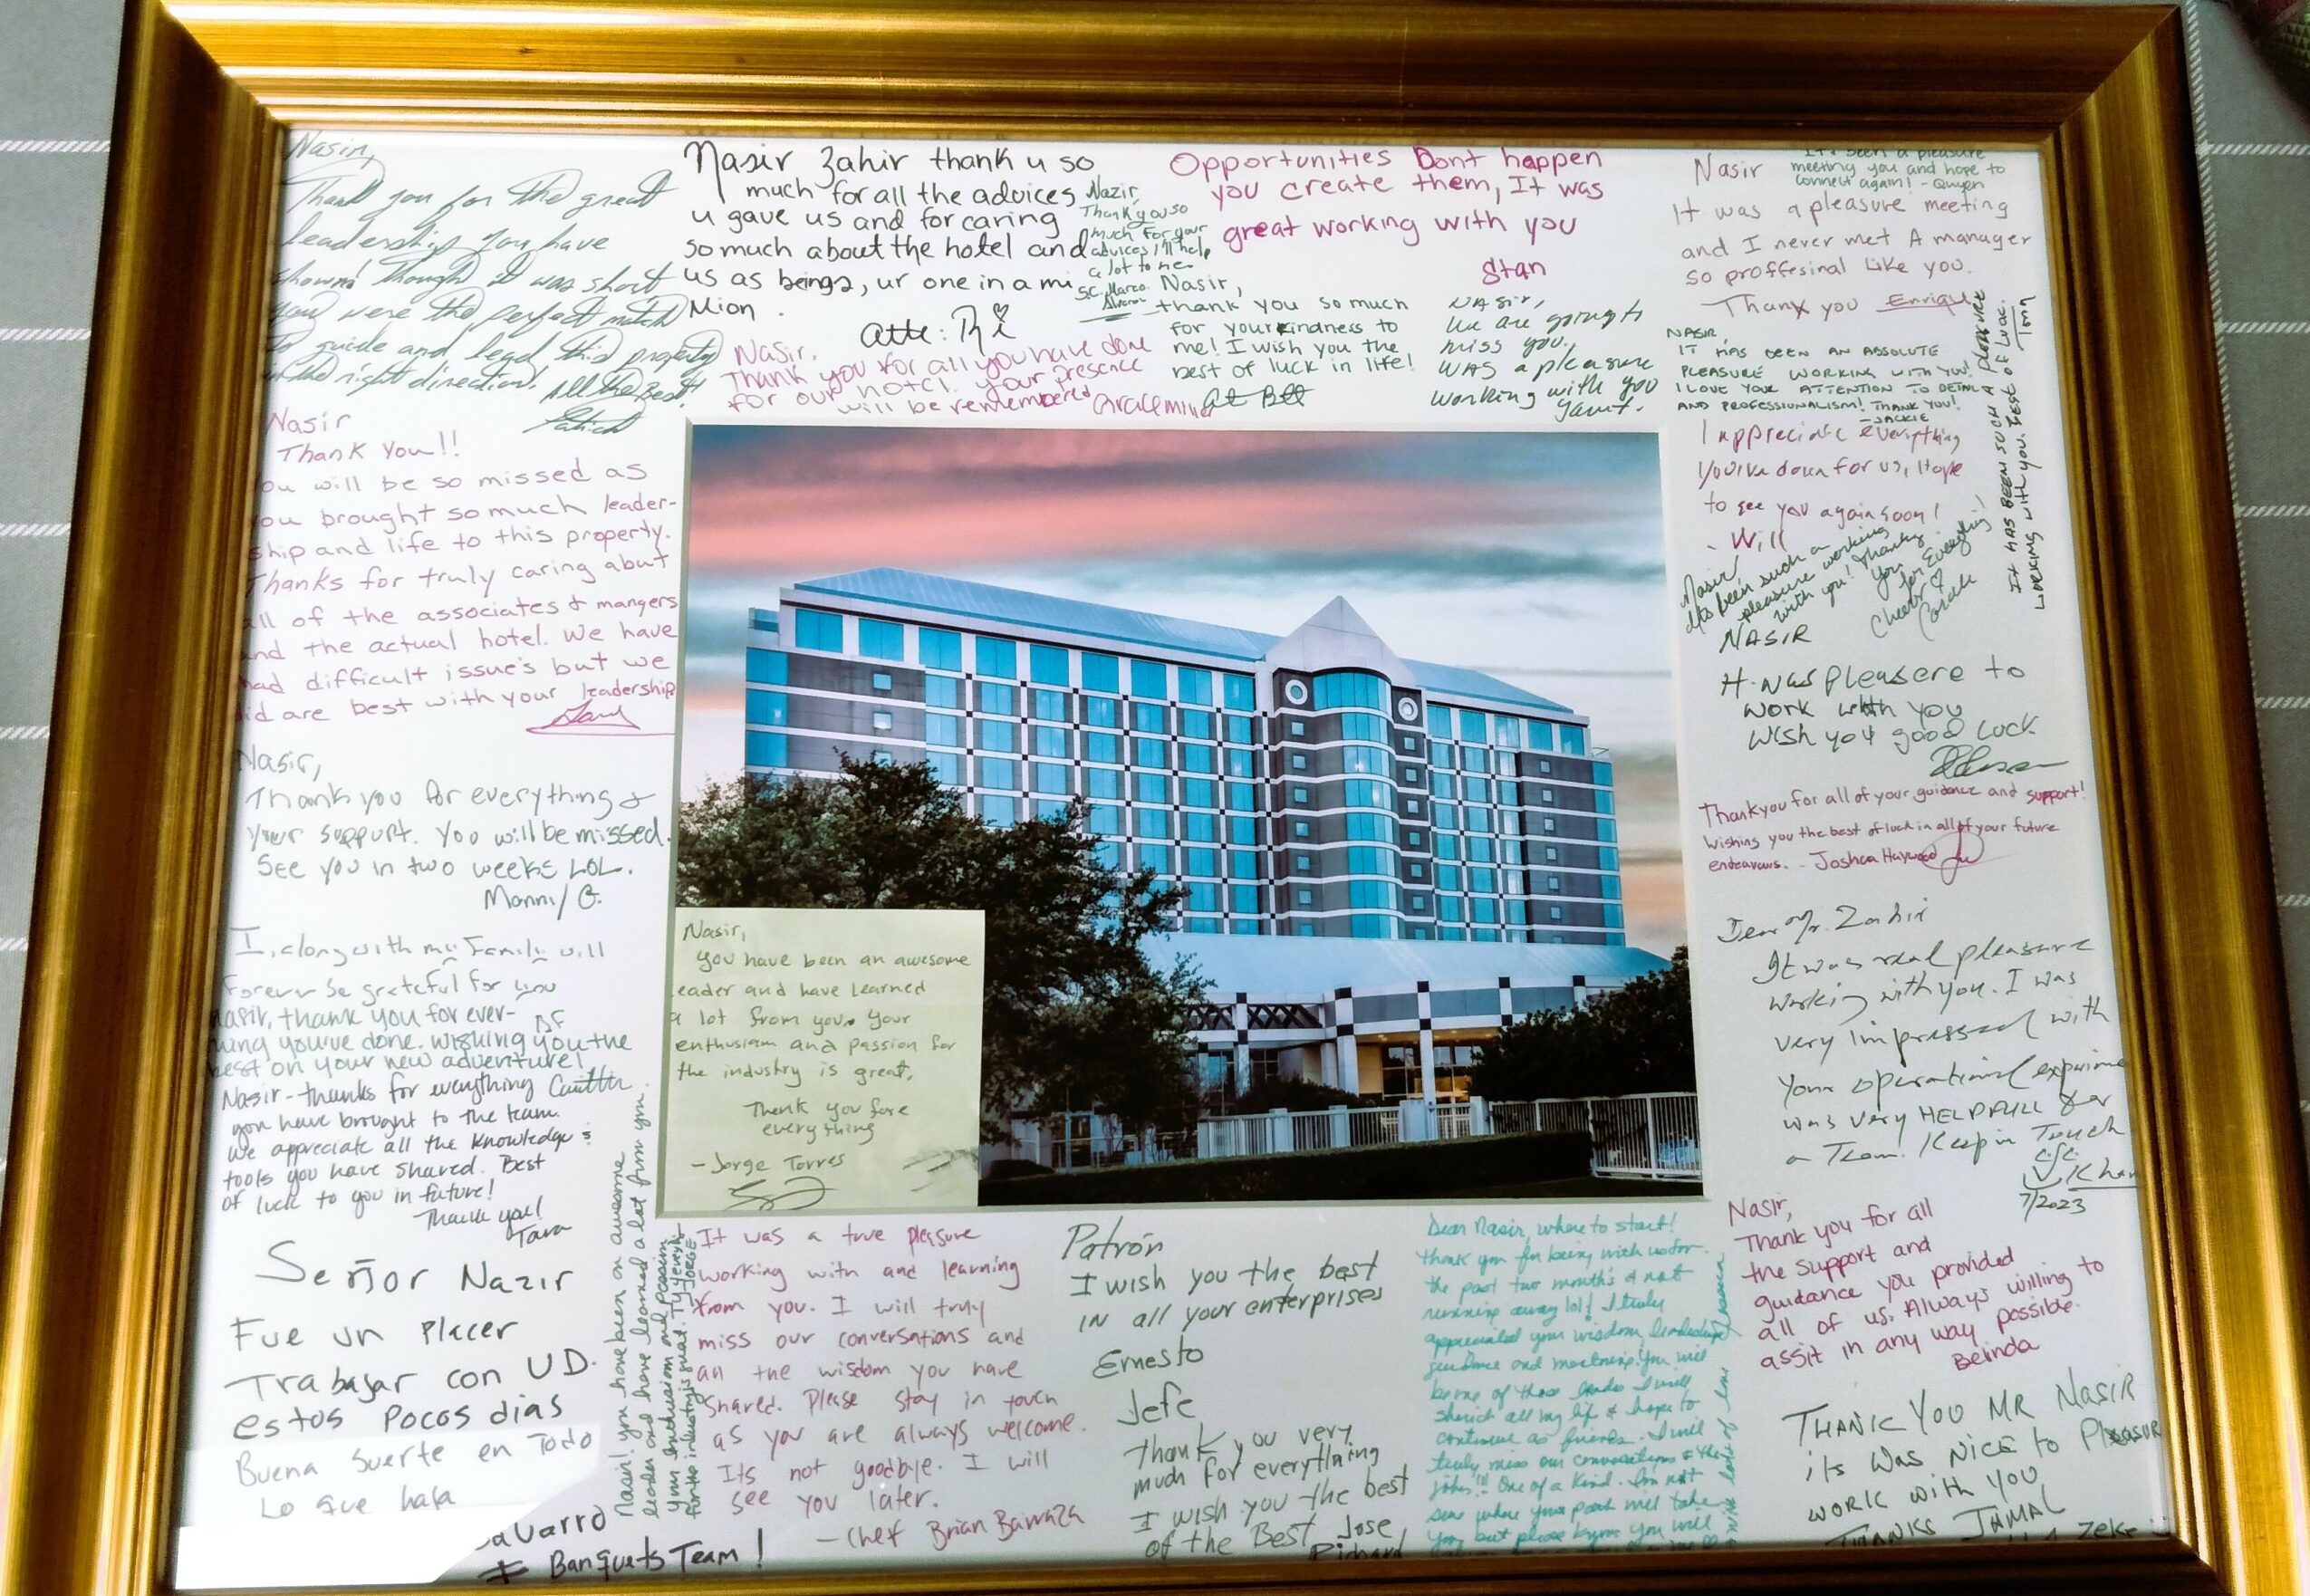 Nasir,
Thank you for the great
leadership you have
shown! though it was short
you were the perfect match
to guide and lead this property
in the right direction! All the Best!
Nasir Zahir thank u so
much for all the advices
u gave us and for caring
so much about the hotel and
us as beings, ur one in a mi
Mion.
Atte:
Nazir,
Thank you so
much for your
advices I'll help
a lot to me
Marco
Opportunities Dont happen
you create them, It was
great working with you
Stan
Nasir
It was a pleasure meeting
and I never met A manager
so proffesinal Like you.
Thank you Enrique
It's been a pleasure
meeting you and hope to
connect again! - Quyen
Nasir,
Thank you for all you have done
for our hotel. your presence
will be remembered
Nasir,
thank you so much
for your kindness to
me! I wish you the
best of luck in life!
Nasir,
we are going to
miss you.
WAS a pleasure
working with you
NASIR,
IT HAS BEEN AN ABSOLUTE
PLEASURE WORKING WITH YOU!
I LOVE YOUR ATTENTION TO DETAIL
AND PROFESSIONALISM! THANK YOU!
- JACKIE
IT HAS BEEN SUCH A PLEASURE
WORKING WITH YOU. BEST OF LUCK.
I appreciate everything
you've down for us, Hope
to see you again soon!
- Will
Nasir
Its been such a
pleasure working
with you! Thank
you
for Everything!
Cheers
NASIR
It was pleasere to
work with you
wish you good luck
Nasir
Thank You!!
ou will be so missed as
ou brought so much leader-
ship and life to this property.
Thanks for truly caring about
all of the associates & mangers
and the actual hotel. We have
had difficult issue's but we
did are best with your leadership
Nasir,
Thank you for everything &
your support. You will be missed.
See you in two weeks LOL.
Thankyou for all of your guidance and support!
Wishing you the best of luck in all of your future
endeavours. - Joshua Haywood
Dear Mr. Zahir
It was real pleasure
working with you. I was
very impressed with
Your operational experience
was very HELPFULL for
a Team. Keep in Touch
Khan
7/2023
I, along with my Family will
Forever be grateful for you
Nasir, thank you for ever-
thing you've done. Wishing you the
best on your new adventure!
Caitlin
Nasir - thanks for everything
you have brought to the team.
We appreciate all the knowledge &
tools you have shared. Best
of luck to you in future!
Thank you!
Tara
Nasir,
You have been an awesome
eader and have learned
a lot from you. Your
enthusiam and passion for
the industry is great,
Thank you fore
everything
- Jorge Torres
Nasir! you have been an awesome
leader and have learned a lot from you.
Your enthusiasm and passion
for the industry is great.
- JORGE
Señor Nazir
Fue un Placer
Trabajar con UD.
estos pocos dias
Buena Suerte en Todo
Lo que haga
avarro
& Banquets Team!
It was a true pleasure
working with and learning
from you. I will truly
miss our conversations and
all the wisdom you have
shared. Please stay in touch
as you are always welcome.
Its not goodbye. I will
see you later.
- Chef Brian Barraza
Patrón
I wish you the best
in all your enterprises
Ernesto
Jefe
Thank you very
much for everything
I wish you the best
of the Best Jose
Richard
Dear Nasir, where to start!
Thank you for being with us for
the past two months & not
running away lol! I truly
appreciated your wisdom, leadership
guidance and mentoring. You will
be one of those leaders I will
cherish all my life & hope to
continue as friends. I will
truly miss our conversations & the
jokes!!! One of a Kind. I'm not
sure where your path will take
you but please know you will
Nasir,
Thank you for all
the support and
guidance you provided
all of us. Always willing to
assit in any way possible.
Belinda
THANK YOU MR NASIR
its was nice to Pleasur
WORK WITH YOU
THANKS JAMAL
Zeke